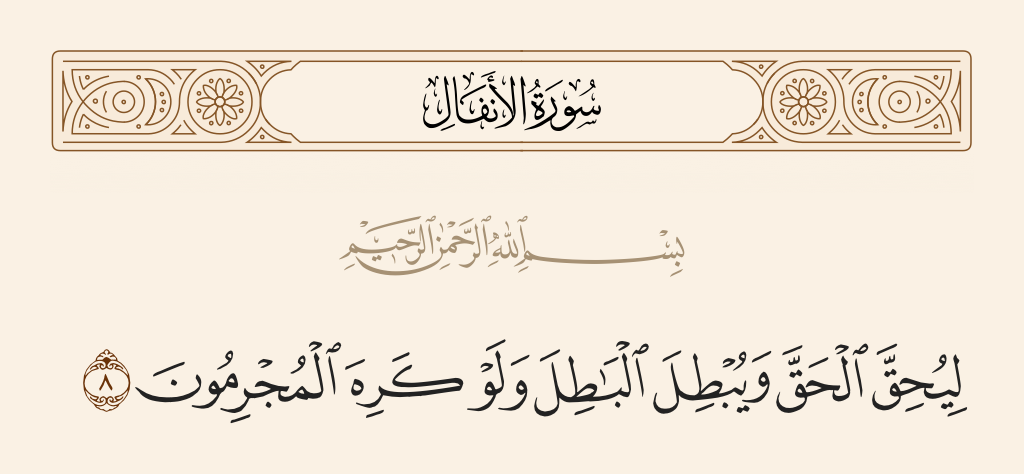 سُورَةُ الأَنفَالِ
بِسْمِ ٱللَّهِ ٱلرَّحْمَٰنِ ٱلرَّحِيمِ
لِيُحِقَّ ٱلْحَقَّ وَيُبْطِلَ ٱلْبَٰطِلَ وَلَوْ كَرِهَ ٱلْمُجْرِمُونَ ٨